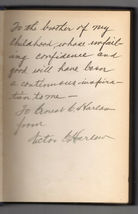 To the brother of my
childhood, whose unfail-
ing confidence and
good will have been
a continuous inspira-
tion to me —
To Ernest C. Harlow
from
Victor E. Harlow